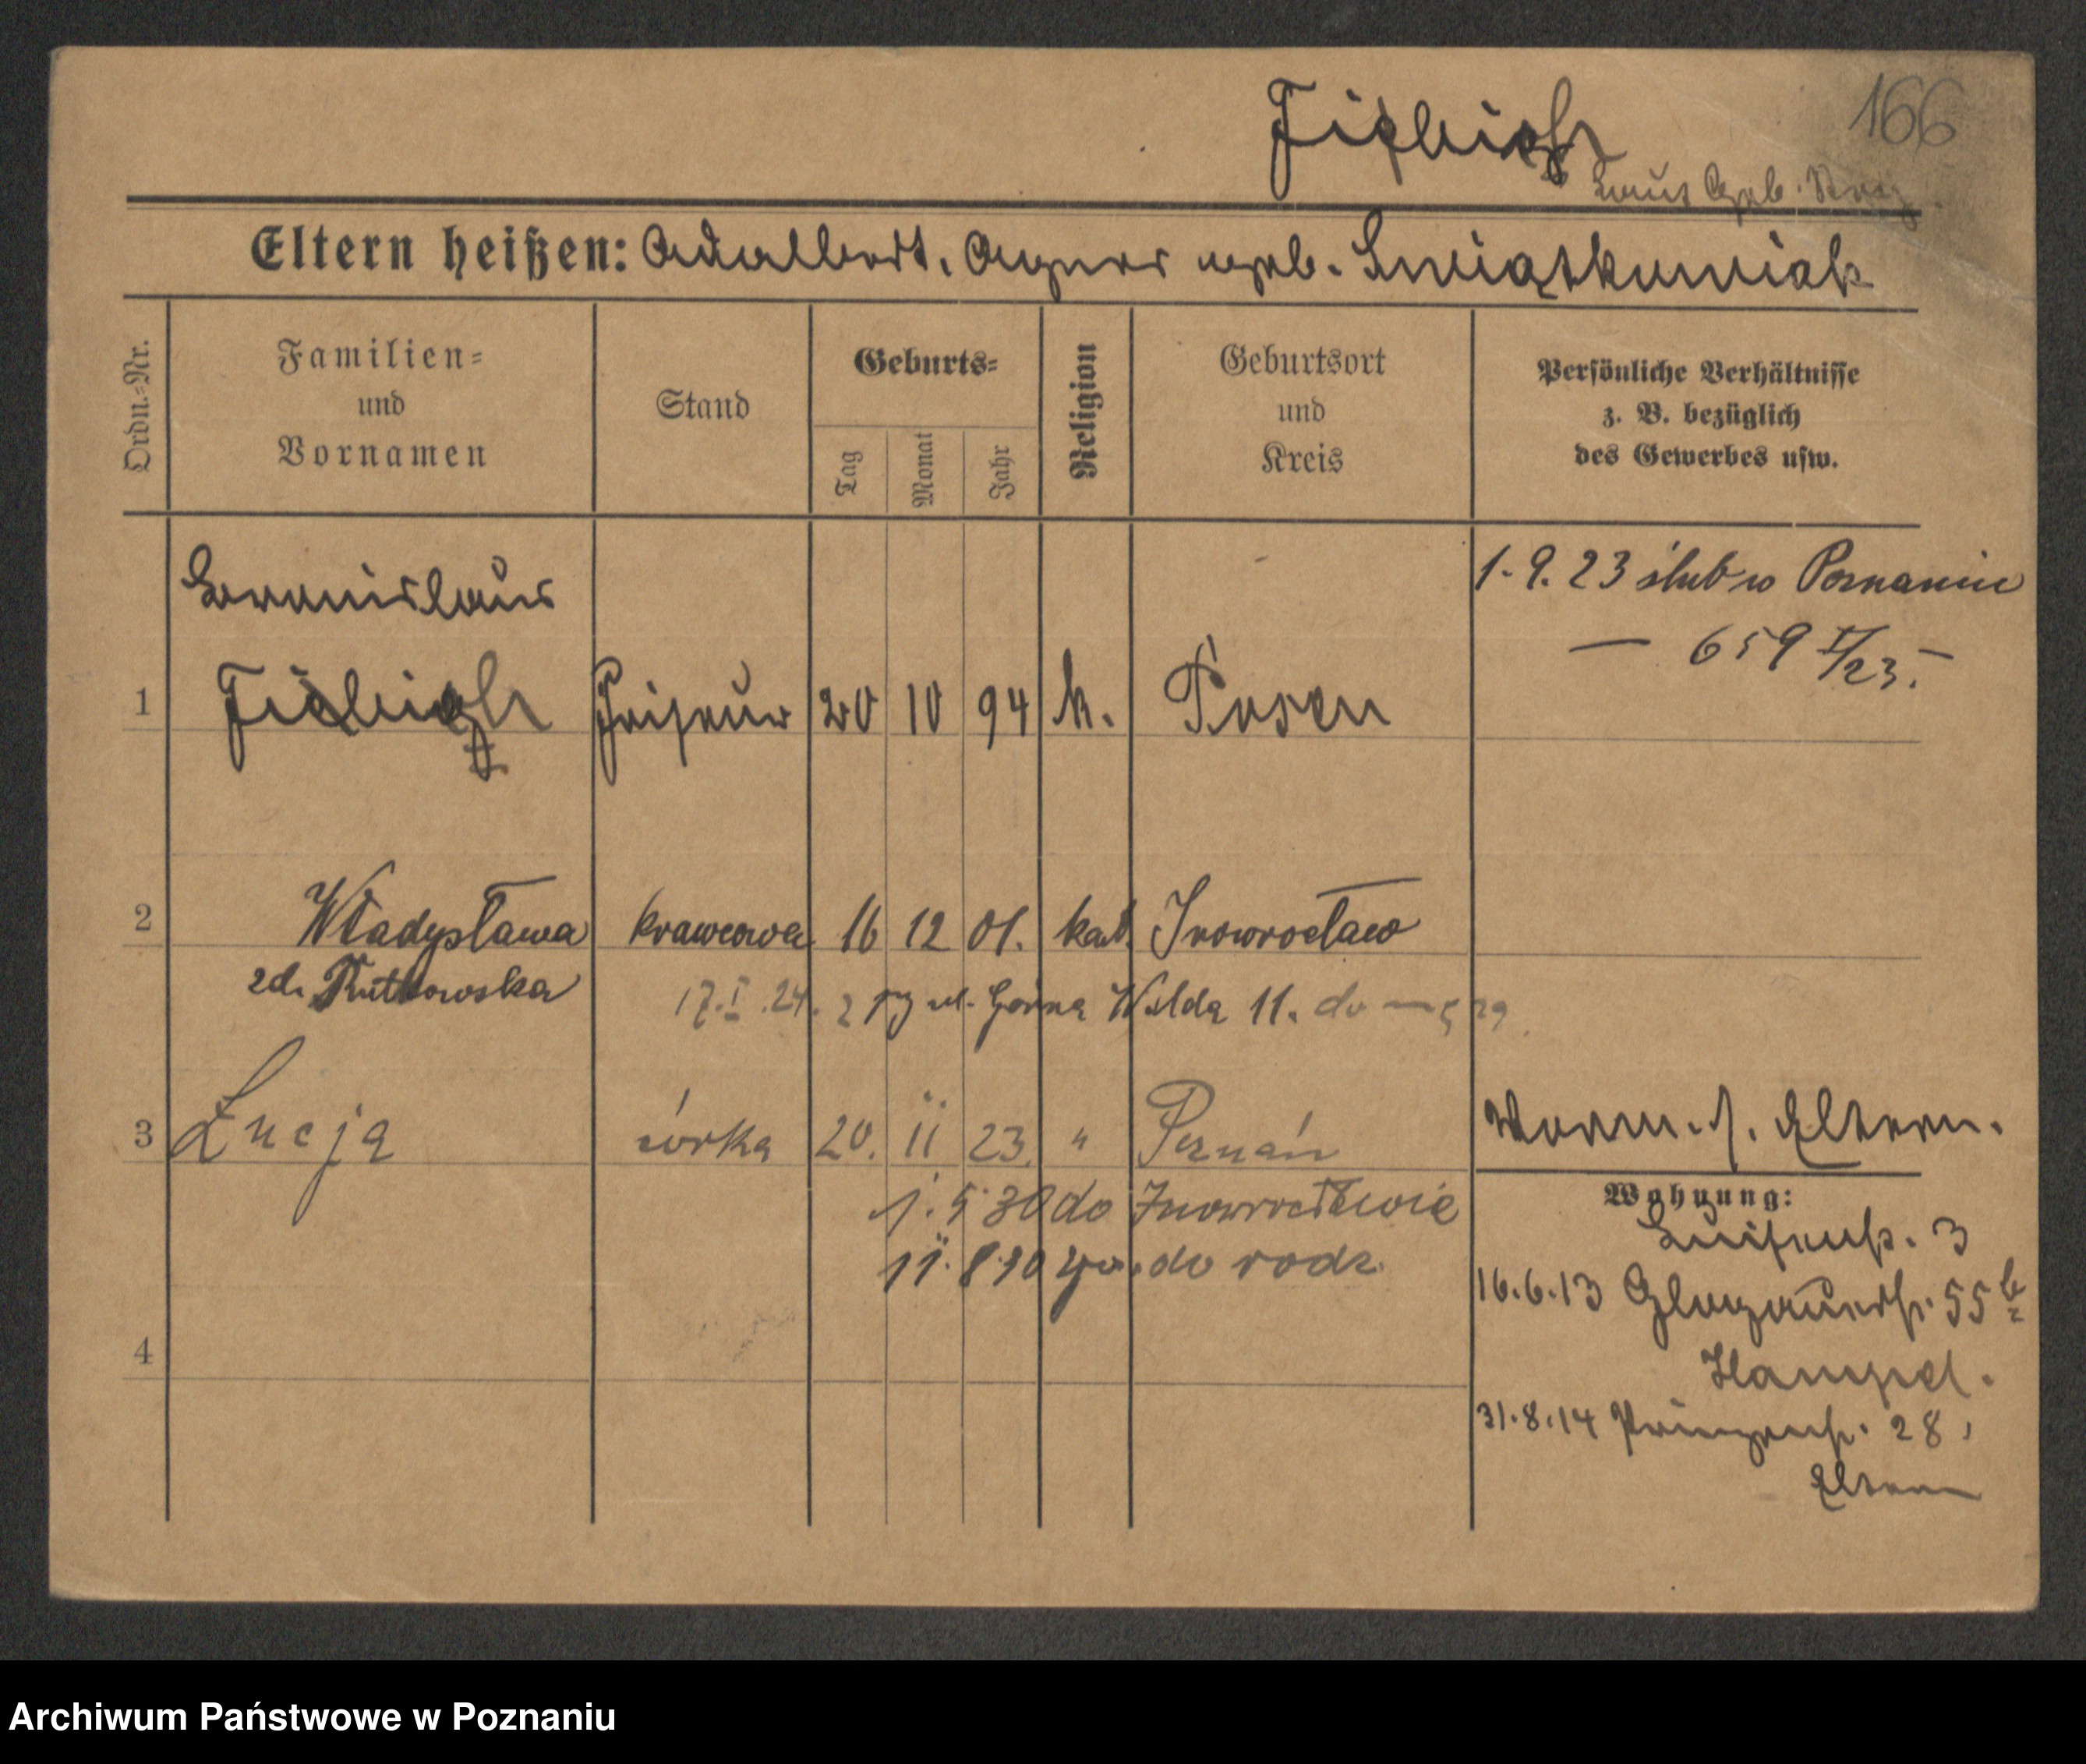 166
laut Geb. Reg.
Eltern heißen: Adalbert, Agnes geb. Swiątkowiak
Ordn.=Nr.
Familien=
und
Vornamen
Stand
Geburts=
Tag
Monat
Jahr
Religion
Geburtsort
und
Kreis
Persönliche Verhältnisse
z. B. bezüglich
des Gewerbes usw.
1.9.23 ślub w Poznaniu
— 659 I/23.—
1 Friseur 20 10 94 k. Posen
2 Władysława krawcowa 16 12 01. kat. Inowrocław
zd. Rutkowska
17.I.24. ul. Górna Wilda 11. do
3 Łucja córka 20. 11 23. " Poznań
Eltern.
1.5 30 do Inowrocławia
11.8.30 do rodz.
Wohnung:
Luisenstr. 3
16.6.13 Glogauerstr. 55
Hampel.
31.8.14 Prinzenstr. 28,
Eltern
4
Archiwum Państwowe w Poznaniu